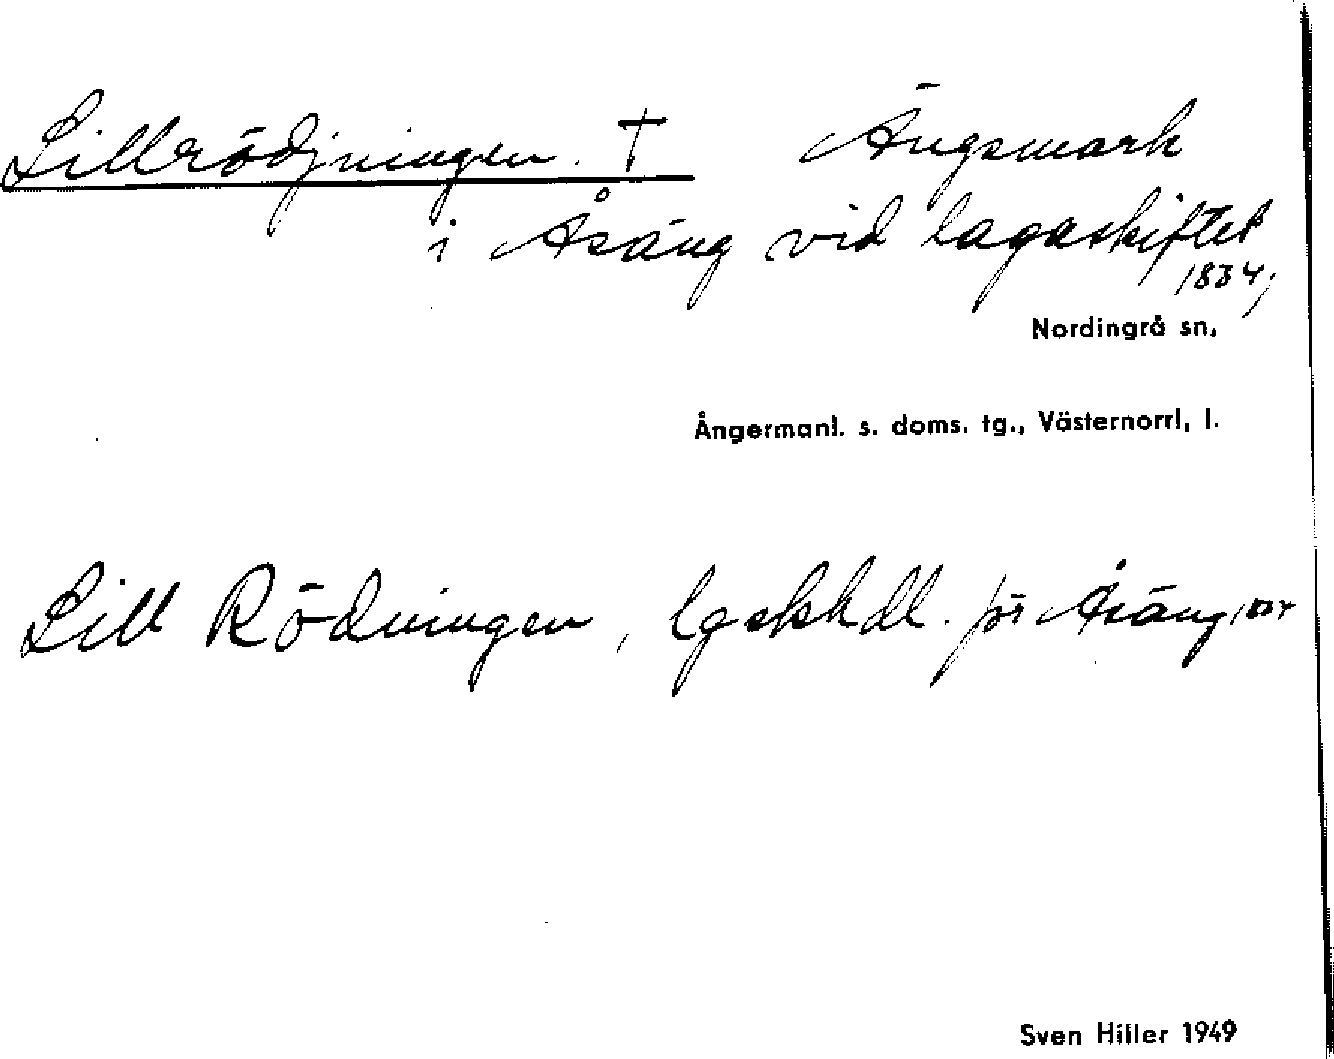 Lillrödjningen. † Ängsmark
i Åsäng vid lagaskiftet
1834;
Nordingrå sn.
Ångermanl. s. doms. tg., Västernorrl. l.
Lill Rödningen, lgskhdl. för Åsäng
Sven Hiller 1949